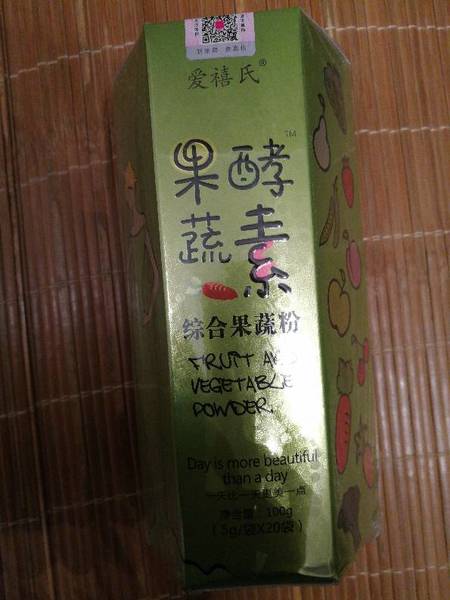 爱禧氏®
果酵 ™
蔬素
综合果蔬粉
FRUIT AND
VEGETABLE
POWDER
Day is more beautiful
than a day
一天比一天更美一点
净含量：100g
（5g/袋X20袋）